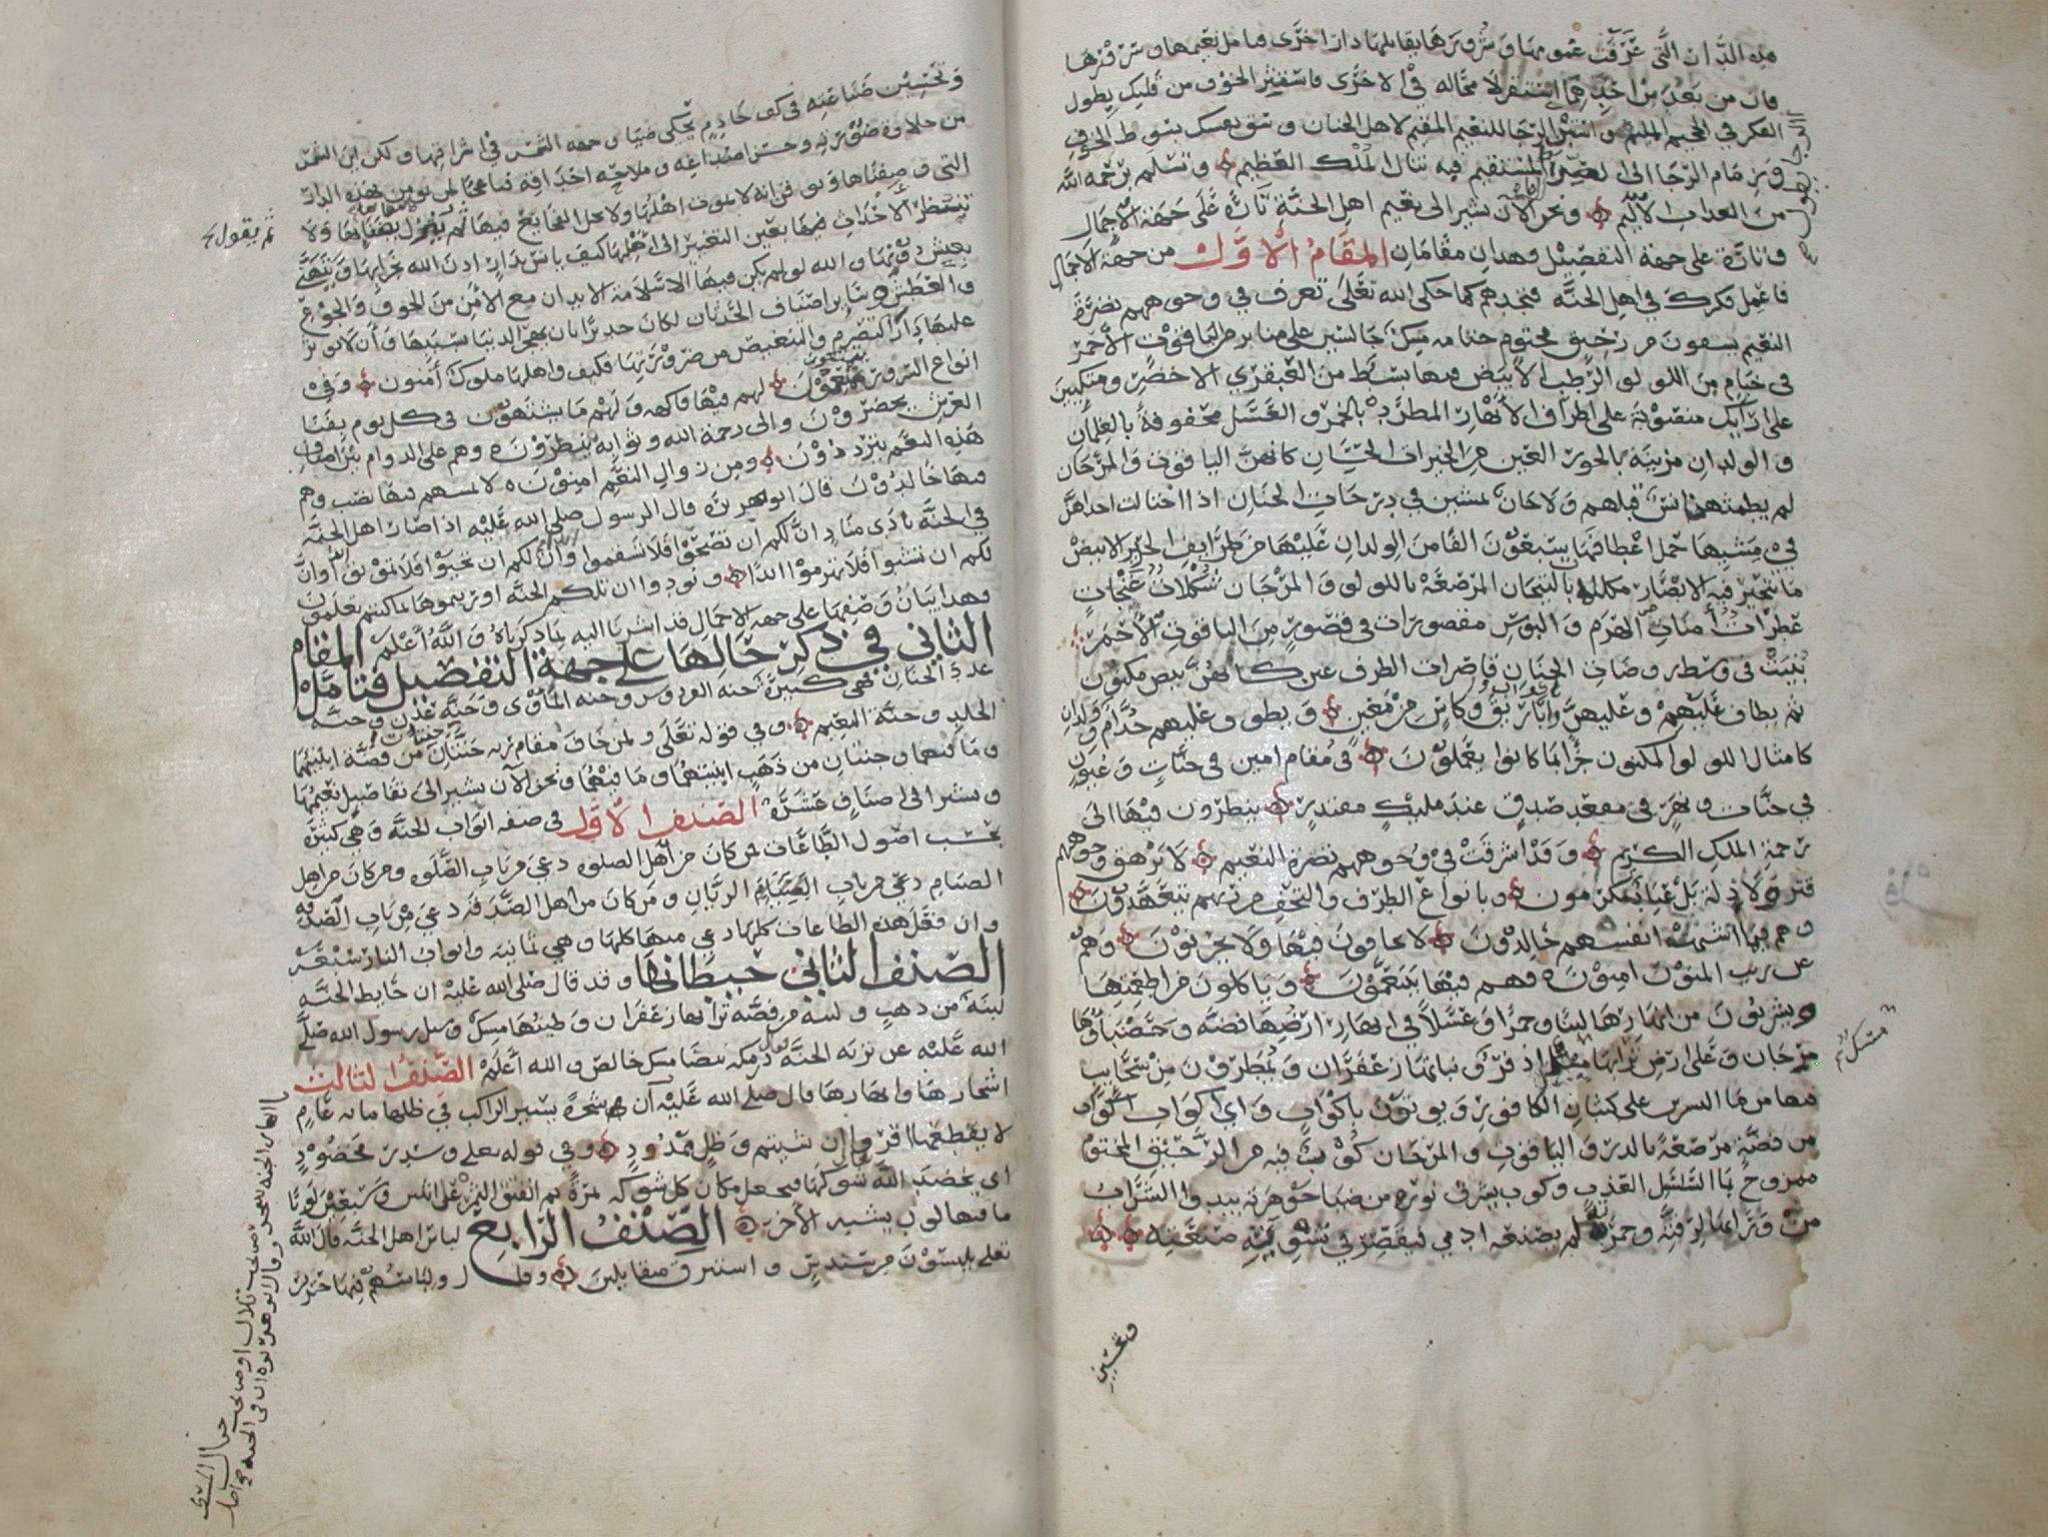 هذه الدار التي عرفت غمومها وشرورها يقابلها دارا اخرى فتامل نعيمها وسرورها
فان من بعد من احدهما استقر لا محاله في الاخرى فاستثر الخوف من قلبك بطول
الفكر في الجحيم واستثر الرجا للنعيم المقيم لاهل الجنان وسق نفسك بسوط الخوف
وزمام الرجا الى الصراط المستقيم فبه تنال الملك العظيم وتسلم برحمة الله
من العذاب الاليم ونحن الان نشير الى نعيم اهل الجنة تارة على جهة الاجمال
وتارة على جهة التفصيل وهذان مقامان المقام الاول من جهة الاجمال
فاعمل فكرك في اهل الجنة فتجدهم كما حكى الله تعلى تعرف في وجوههم نضرة
النعيم يسقون من رحيق مختوم ختامه مسك جالسين على منابر من الياقوت الاحمر
في خيام من اللولو الرطب الابيض فيها بسط من العبقري الاخضر ومتكيين
على ارايك منصوبة على اطراف الانهار المطردة بالخمر والعسل محفوفة بالغلمان
والولدان مزينة بالحور العين من الخيرات الحسان كانهن الياقوت والمرجان
لم يطمثهن انس قبلهم ولا جان يمشين في درجات الجنان اذا اختالت احداهن
في مشيها حمل اعطافها سبعون الفا من الولدان عليها من طرايف الحرير الابيض
ما تتحير فيه الابصار مكللة بالتيجان المرصعة باللولو والمرجان شكلات غنجات
عطرات امنات الهرم والبوس مقصورات في قصور من الياقوت الاحمر
بنيت في وسط روضات الجنان قاصرات الطرف عين كانهن بيض مكنون
ثم يطاف عليهم وعليهن باكواب واباريق وكاس من معين ويطوف عليهم خدام وولدان
كامثال اللولو المكنون جزا بما كانوا يعملون في مقام امين في جنات وعيون
في جنات ونهر في مقعد صدق عند مليك مقتدر ينظرون فيها الى
رحمة الملك الكريم وقد اشرقت في وجوههم نضرة النعيم لا يرهق وجوههم
قتر ولا ذلة بل عباد مكرمون وبانواع الطرف والتحف من ربهم يتعهدون
وهم فيما اشتهت انفسهم خالدون لا يخافون فيها ولا يحزنون وهم
عن ريب المنون امنون وهم فيها يتنعمون وياكلون من اطعمتها
ويشربون من انهارها لبنا وخمرا وعسلا في انهار ارضها فضة وحصباوها
مرجان وعلى ارض ترابها مسك اذفر ونباتها زعفران ويمطرون من سحاب
فيها من ما النسرين على كثبان الكافور ويوتون باكواب واي اكواب اكواب
من فضة مرصعة بالدر والياقوت والمرجان كوب فيه من الرحيق المختوم
ممزوج بما السلسل العذب وكوب يشرق نوره من صفا جوهره يبدو الشراب
من ورايه برقته وحمرته لم يصنعه ادمي فيقصر في تسوية صنعته
وتحسين
مسك
وتحسين صناعته في كف خادم يحكي ضيا وجهه الشمس في اشراقها ولكن اين الشمس
من حلاوة صورته وحسن اصداغه وملاحة احداقه فيا عجبا لمن يومن بهذه الدار
التي وصفناها ويوقن انه لا يموت اهلها ولا تحل الفجايع فيها
ينتظر الاحداث فيها بعين التغيير الى اهلها كيف يانس بدار اذن الله بخرابها ويتهنى
بعيش دونها والله لو لم يكن فيها الا سلامة الابدان مع الامن من الخوف والجوع
والعطش وساير اصناف الحدثان لكان جديرا بان يهجر الدنيا بسببها وان لا يوثر
عليها دارا التصرم والتنغيص من ضرورتها فكيف واهلها ملوك امنون وفي
انواع السرور يتمتعون لهم فيها فاكهه ولهم ما يشتهون في كل يوم بفنا
العرش يحضرون والى رحمة الله وثوابه ينظرون وهم على الدوام بين اصناف
هذه النعم يترددون ومن زوال النعم امنون لا يمسهم فيها نصب وهم
فيها خالدون قال ابو هريره قال الرسول صلى الله عليه اذا صار اهل الجنة
في الجنة نادى مناد ان لكم ان تصحوا فلا تسقموا وان لكم ان تحيوا فلا تموتوا وان
لكم ان تشبوا فلا تهرموا ابدا ونودوا ان تلكم الجنة اورثتموها بما كنتم تعملون
وهذا بيان وصفها على جهة الاجمال قد اشرنا اليه بما ذكرناه والله اعلم المقام
الثاني في ذكر حالها على جهة التفصيل فتامل
عدد الجنان فهي كثيرة جنة الفردوس وجنه الماوى وجنة عدن وجنة
الخلد وجنة النعيم وفي قوله تعلى ولمن خاف مقام ربه جنتان من فضة ابنيتهما
وما فيهما وجنتان من ذهب ابنيتهما وما فيهما ونحن الان نشير الى تفاصيل نعيمها
ونشير الى اصناف عشرة الصنف الاول في صفه ابواب الجنة وهي كثيرة
بحسب اصول الطاعات فمن كان من اهل الصلوه دعي من باب الصلوه ومن كان من اهل
الصيام دعي من باب الصيام الريان ومن كان من اهل الصدقه دعي من باب الصدقه
وان فعل هذه الطاعات كلها دعي منها كلها وهي ثمانيه وابواب النار سبعة
الصنف الثاني حيطانها وقد قال صلى الله عليه ان حايط الجنة
لبنة من ذهب ولبنة من فضة ترابها زعفران وطينها مسك وسل رسول الله صلى
الله عليه عن تربه الجنة فقال درمكه بيضا مسك خالص والله اعلم الصنف الثالث
اشجارها وانهارها قال صلى الله عليه ان شجرة يسير الراكب في ظلها مايه عام
لا يقطعها اقروا ان شيتم وظل ممدود وفي قوله تعلى وسدر مخضود
اي يخضد الله شوكها فيجعل مكان كل شوكه ثمرة ثم انفتق الثمر على اثنين وسبعين لونا
ما فيها لون يشبه الاخر الصنف الرابع لباس اهل الجنة قال الله
تعلى يلبسون من سندس واستبرق متقابلين وقال ولباسهم فيها حرير
ثم يقول